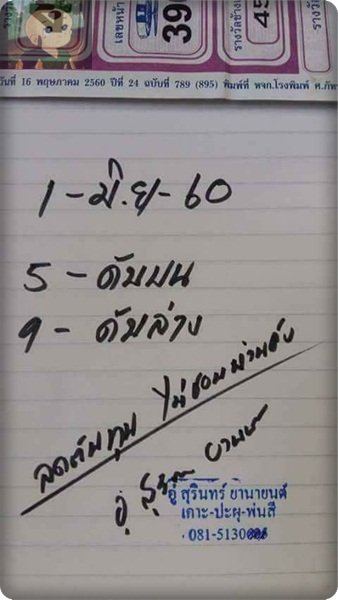 เลขหน้า
39
รางวัลข้างเ
45
วันที่ 16 พฤษภาคม 2560 ปีที่ 24 ฉบับที่ 789 (895) พิมพ์ที่ หจก.โรงพิมพ์ ศ.ภัท
1-มิ.ย-60
5 - ดับบน
9 - ดับล่าง
ลดต้นทุน ไม่ชอบผ่านคับ
อู่ สุรินทร์ ยานยนต์
อู่ สุรินทร์ ยานายนต์
เคาะ-ปะผุ-พ่นสี
081-5130